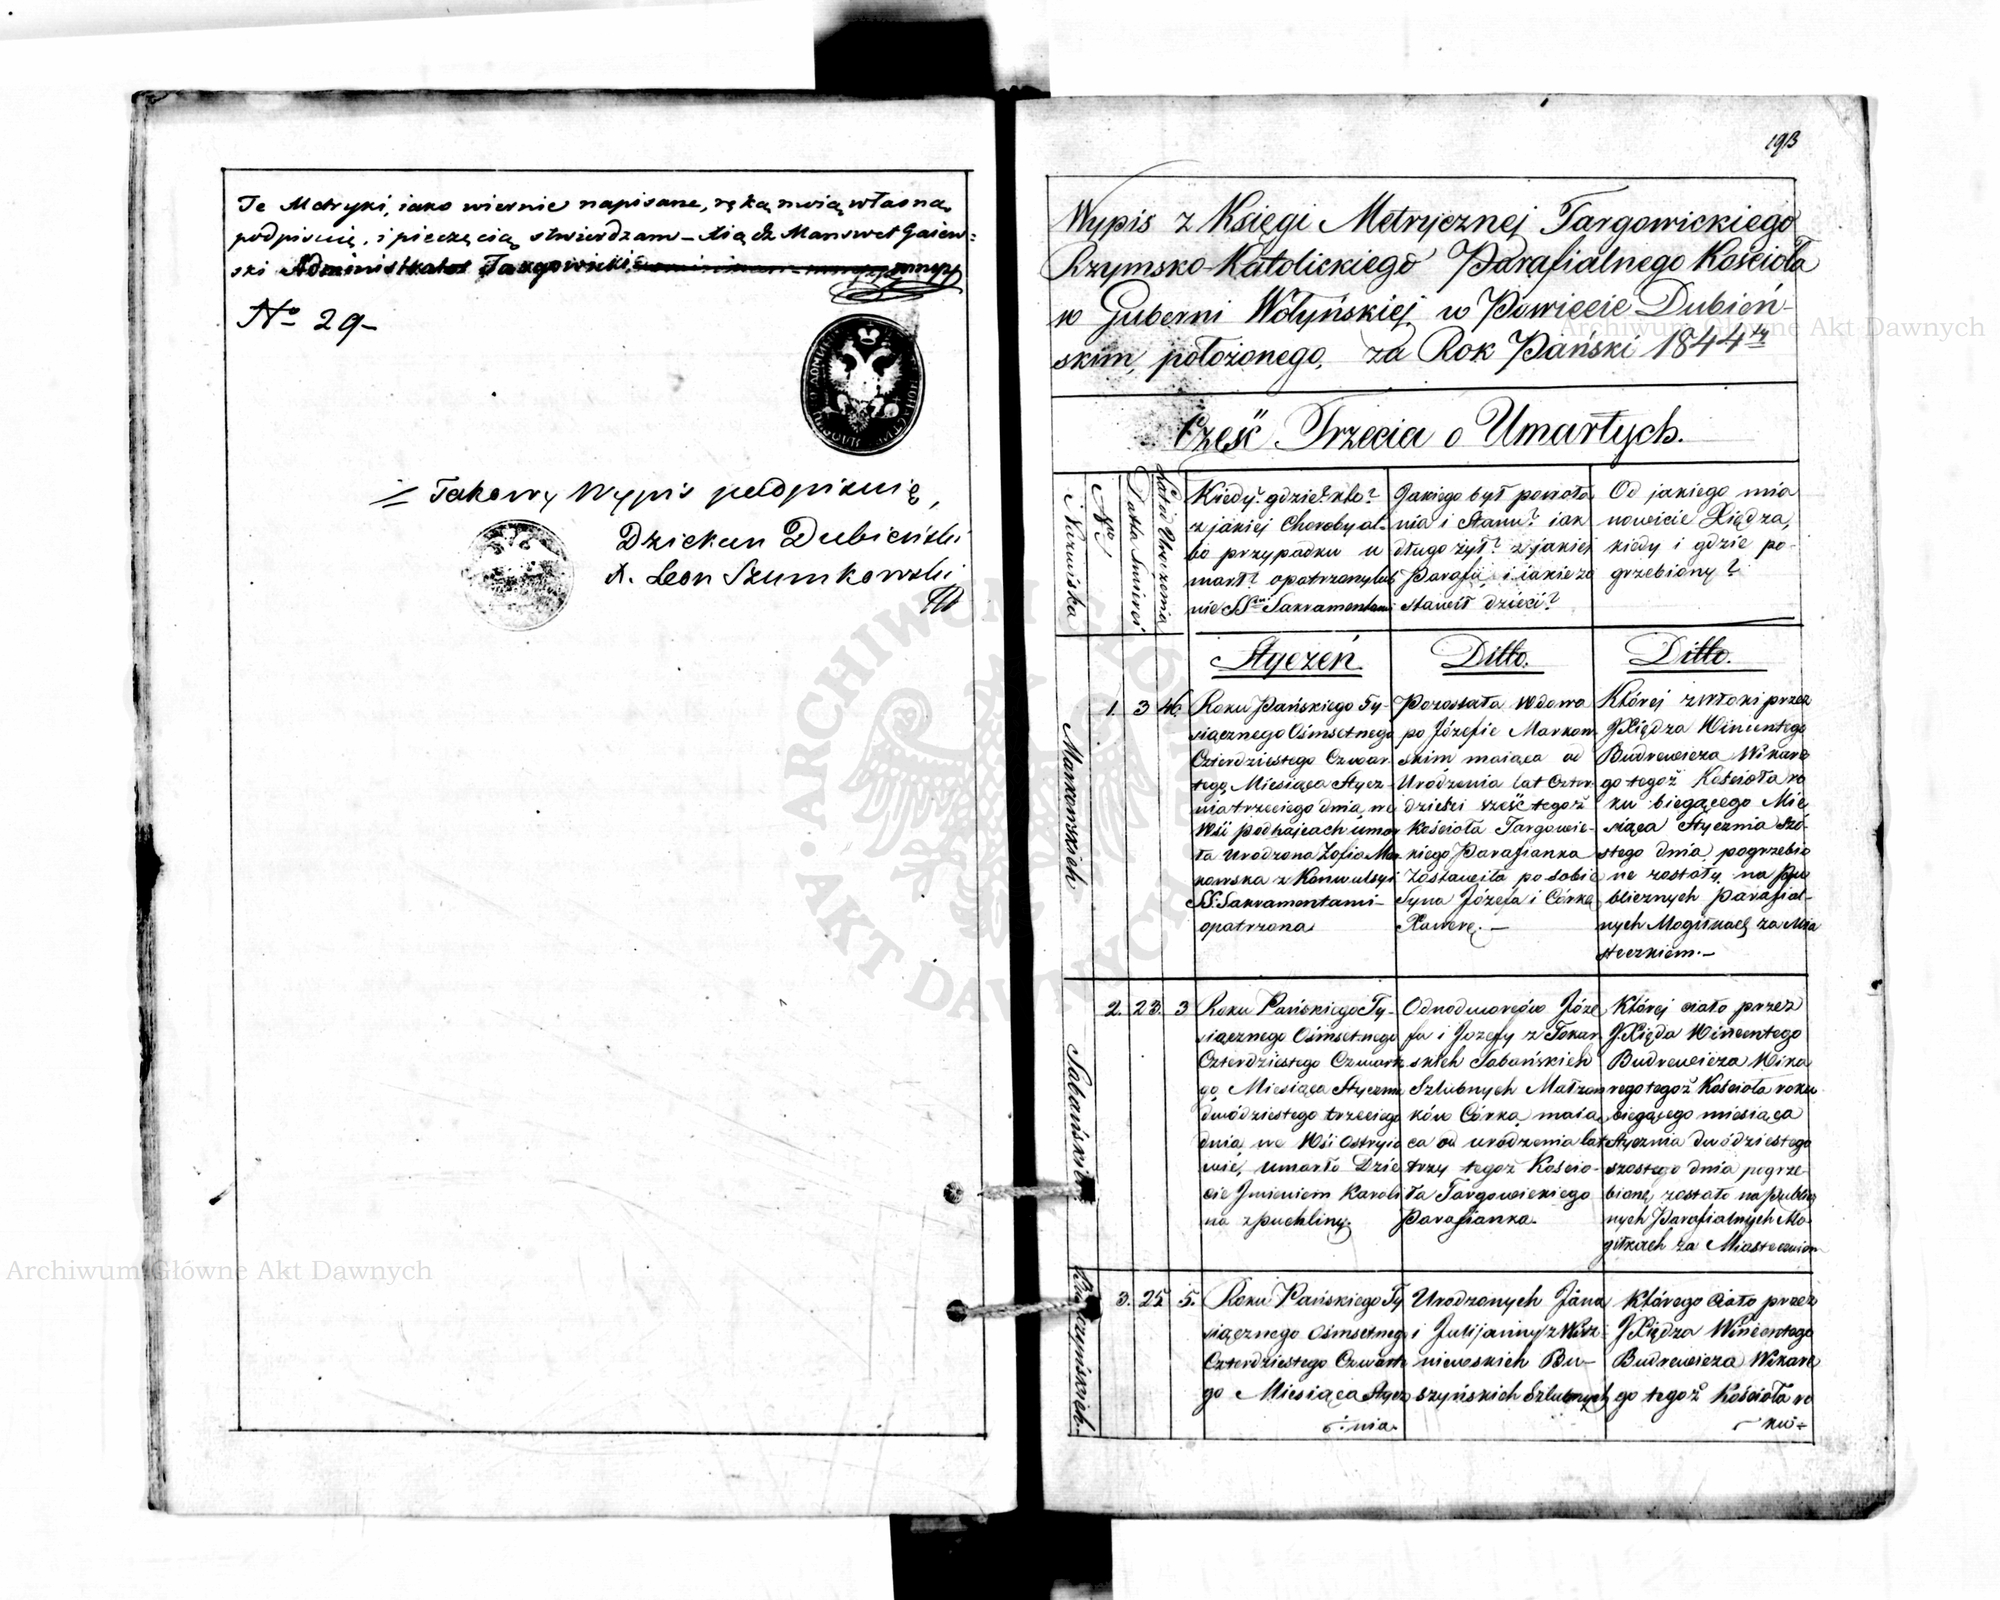 Te Metryki, iako wiernie napisane, ręką moią własną
podpisuię, i pieczęcią stwierdzam – Xiądz Manswet Gaiew-
ski Administrator Targowicki mppr
No 29-
Takowy Wypis podpisuię,
Dziekan Dubieński
X. Leon Szumkowski
193
Wypis z Księgi Metrycznej Targowickiego
Rzymsko-Katolickiego Parafialnego Kościoła
w Guberni Wołyńskiej w Powiecie Dubień-
skim, położonego, za Rok Pański 1844ty
Część Trzecia o Umarłych.
Nazwiska
Nro
Datta Smierci
Lata Urodzenia
Kiedy? gdzie? kto?
z jakiej Choroby al-
bo przypadku u
marł? opatrzony lub
nie SSmi Sakramentami
Jakiego był powoła
nia i Stanu? iak
długo żył? z jakiej
Parafii i iakie zo
stawił dzieci?
Od jakiego mia
nowicie Xiędza,
kiedy i gdzie po-
grzebiony?
Styczeń
Ditto.
Ditto.
Markowskich
1. 3 46.
Roku Pańskiego Ty-
siącznego Ośmsetnego
Czterdziestego Czwar-
tego, Miesiąca Stycz-
nia trzeciego dnia, we
Wsi podhajcach umar
ła Urodzona Zofia Mar
kowska z Konwulsyi
SS. Sakramentami
opatrzona
Pozostała Wdowa
po Józefie Markow-
skim maiąca od
Urodzenia lat Czter-
dzieści sześć tegoż
Kościoła Targowic-
kiego Parafianka
Zostawiła po sobie
Syna Józefa i Córkę
Xawerę. –
Której zwłoki przez
JXiędza Wincentego
Budrewicza Wikare
go tegoż Kościoła ro
ku biegącego Mie
siąca Stycznia Szó-
stego dnia pogrzebio
ne zostały na Pu
blicznych Parafial-
nych Mogiłkach za Mia
steczkiem. –
Sabańskich
2. 23. 3
Roku Pańskiego Ty-
siącznego Ośmsetnego
Czterdziestego Czwarte
go, Miesiąca Stycznia
dwódziestego trzeciego
dnia, we Wsi Ostryio
wie, umarło Dzie
cie Jmieniem Karoli
na z puchliny.
Odnodworców Józe
fa i Jozefy z Tokar
skich Sabańskich
Szlubnych Małżon
ków Córka, maią
ca od urodzenia lat
trzy tegoż Kościo-
ła Targowickiego
Parafianka.
Której ciało przez
JXiędza Wincentego
Budrewicza Wika
rego tegoż Kościoła roku
biegącego miesiąca
Stycznia dwódziestego
szostego dnia pogrze-
bione zostało na publicz
nych Parafialnych Mo-
giłkach za Miasteczkiem
3. 25 5.
Roku Pańskiego Ty
siącznego Ośmsetneg
Czterdziestego Czwarte
go Miesiąca Stycz
nia.
Urodzonych Jana
i Julijanny z Wisz
niewskich Bu-
szyńskich Szlubnych
Którego Ciało przez
JXiędza Wincentego
Budrewicza Wikare
go tegoż Kościoła ro
ku
Archiwum Główne Akt Dawnych
Archiwum Główne Akt Dawnych
ARCHIWUM GŁÓWNE
AKT DAWNYCH